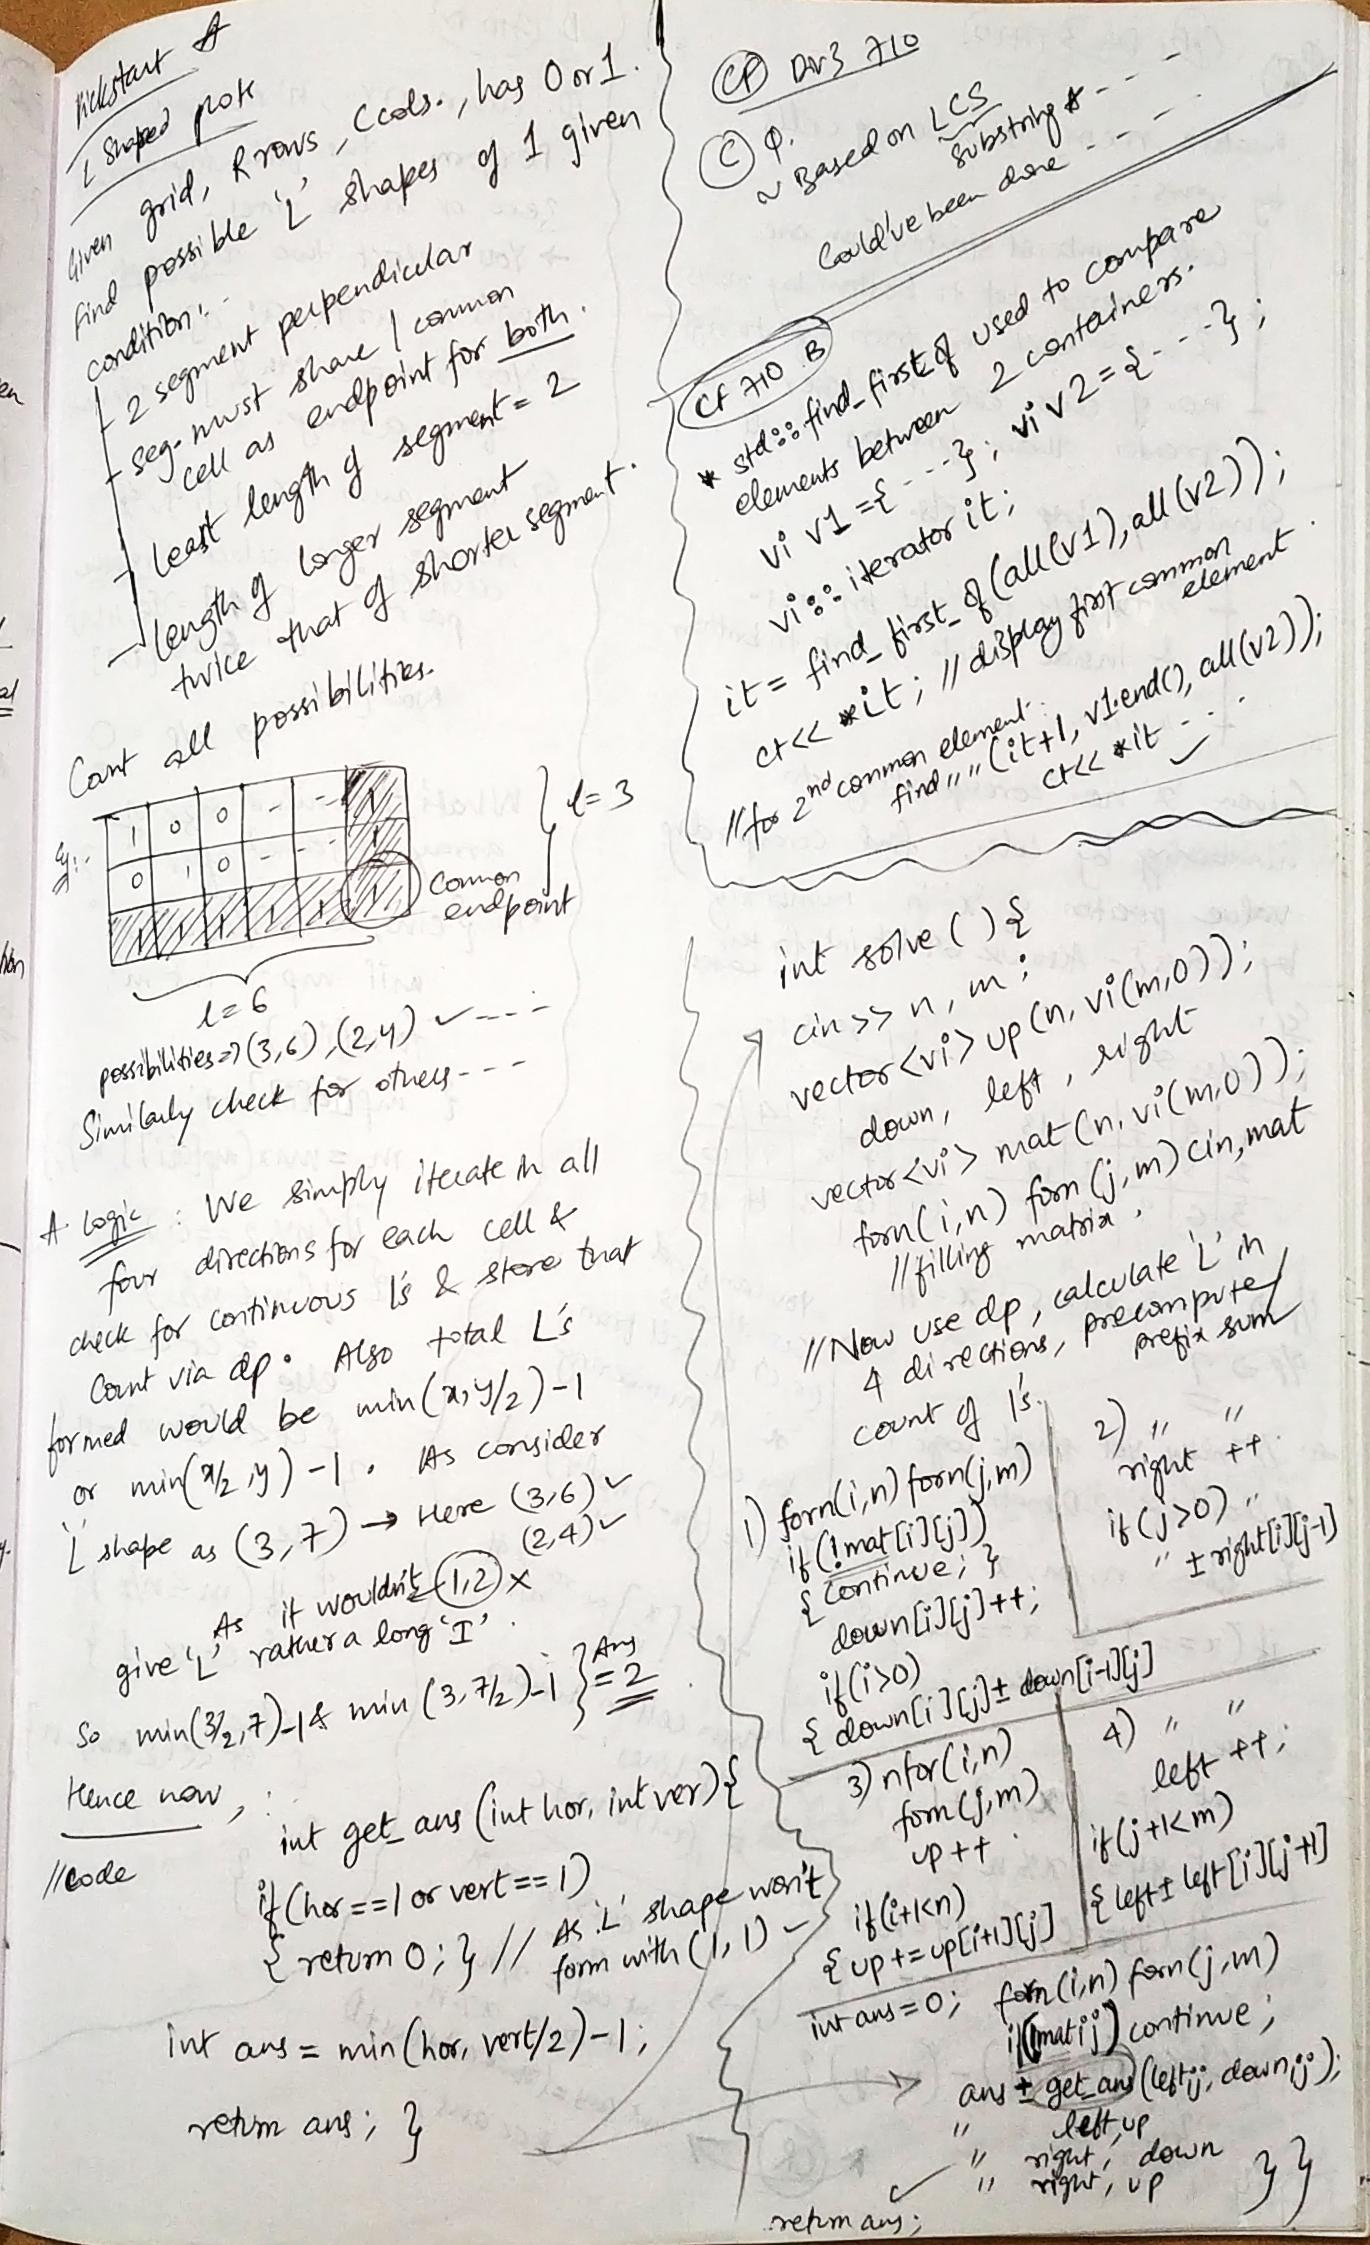 Kickstart A
L Shaped plots
Given grid, R rows, C cols., has 0 or 1.
Find possible 'L' shapes of 1 given
condition:-
- 2 segment perpendicular
- seg. must share 1 common
cell as endpoint for both.
- Least length of segment = 2
- length of longer segment
twice that of shorter segment.
Count all possibilities.
Eg:-
1 0 0 - - 1
0 1 0 - - - 1
1 1 1 1 1 1
l=3
Common
endpoint
l=6
possibilities => (3,6), (2,4) ✓ - - -
Similarly check for others - - -
* Logic : We simply iterate in all
four directions for each cell &
check for continuous 1's & store that
Count via dp. Also total L's
formed would be min(x, y/2) -1
or min(x/2, y) -1. As consider
'L' shape as (3,7) → Here (3,6) ✓
(2,4) ✓
As it wouldn't (1,2) x
give 'L', rather a long 'I'.
So min(3/2,7)-1 & min (3,7/2)-1 } Ans = 2
Hence now, :
//code
int get_ans (int hor, int ver) {
if (hor ==1 or vert == 1)
{ return 0; } // As 'L' shape won't
form with (1,1) ✓
int ans = min (hor, vert/2) -1;
return ans; }
CP Div3 710
C Q.
~ Based on LCS
substring * - - -
Could've been done - - -
CF 710 B
* std::find_first_of used to compare
elements between 2 containers.
vi v1 = {- - -}; vi v2 = {- - -};
vi::iterator it;
it = find_first_of (all(v1), all(v2));
ct<< *it; // display first common
element
//for 2nd common element.
find " " (it+1, v1.end(), all(v2));
ct<< *it - - -
✓
int solve () {
cin >> n, m;
vector<vi> up (n, vi(m,0));
down, left, right
vector<vi> mat (n, vi(m,0));
forn(i,n) forn (j,m) cin, mat
//filling matrix.
//Now use dp, calculate 'L' in
4 directions, precompute/
prefix sum
count of 1's.
1) forn(i,n) forn(j,m)
if (!mat[i][j])
{ continue; }
down[i][j]++;
if(i>0)
{ down[i][j] ± down[i-1][j]
2) " "
right ++
if (j>0) "
" ± right[i][j-1]
3) nfor(i,n)
forn(j,m)
up ++
if(i+1<n)
{ up += up[i+1][j]
4) " "
left ++;
if(j+1<m)
{ left ± left[i][j+1]
int ans=0; forn(i,n) forn(j,m)
if(!mat ij) continue;
ans ± get_ans (left ij, down ij);
" left, up
" right, down
" right, up } }
✓
return ans;